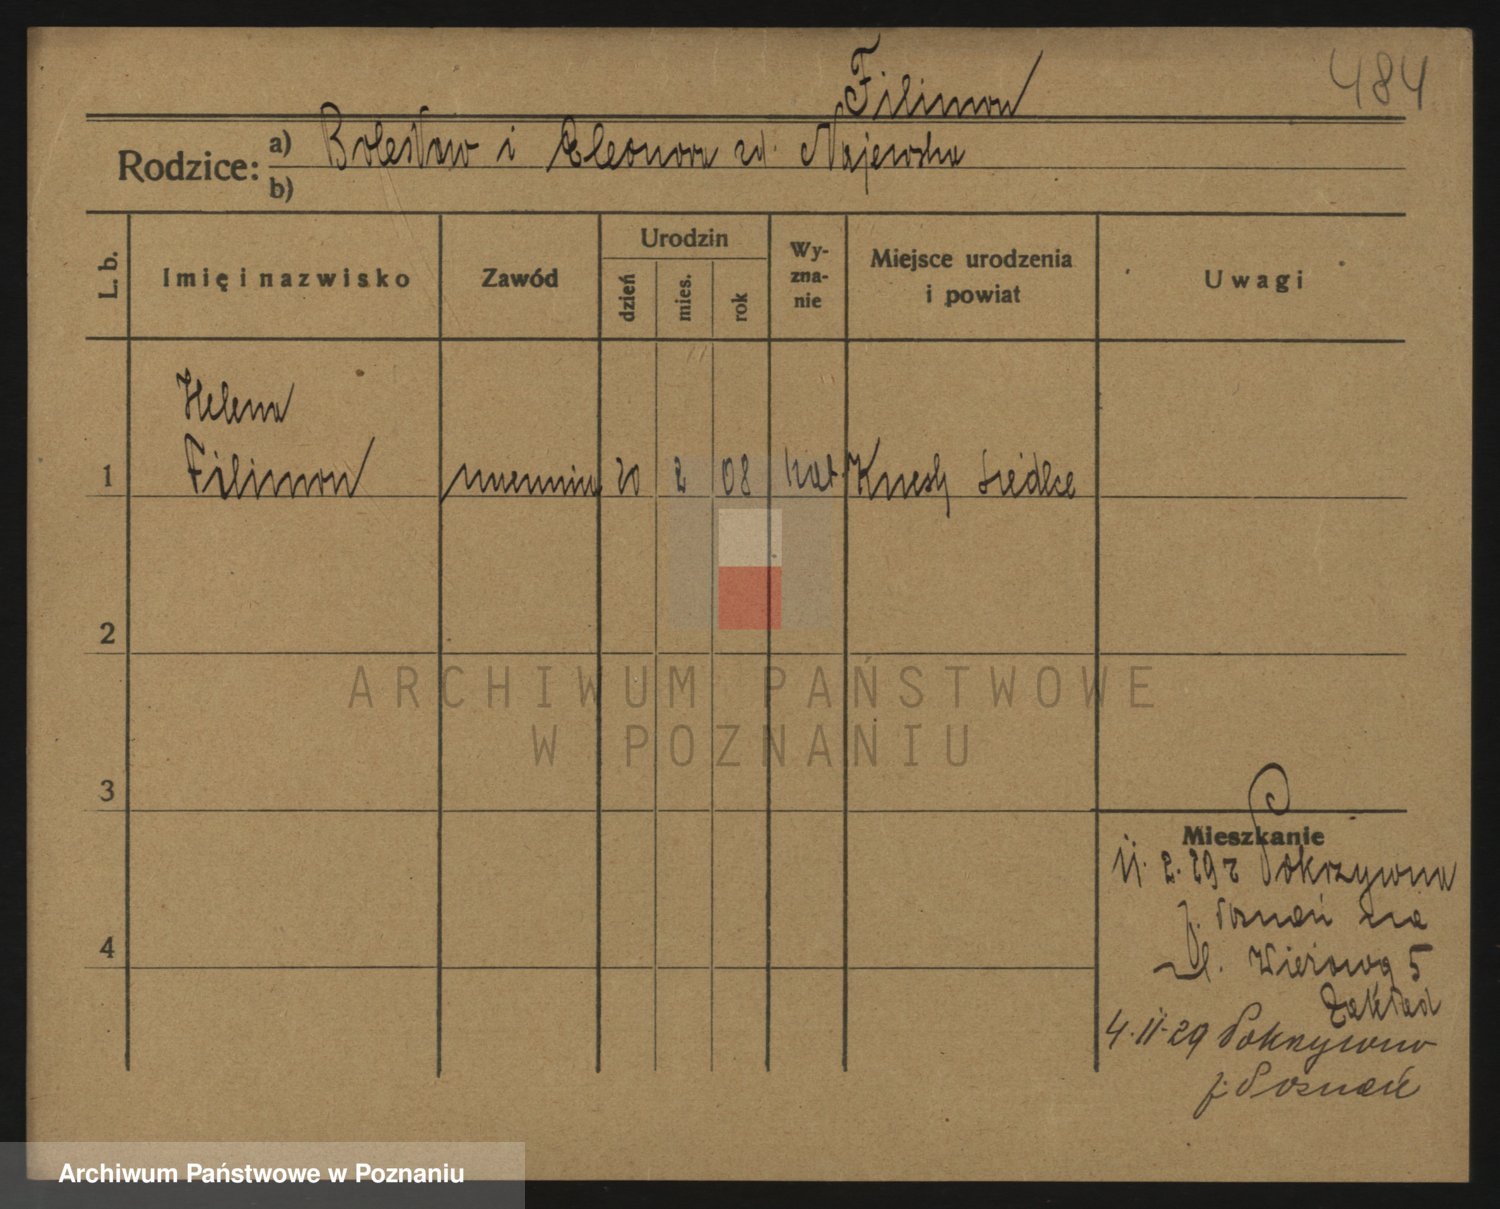 484
Filimon
Rodzice: a) Bolesław i Eleonora zd. Najewska
b)
L. b. Imię i nazwisko Zawód Urodzin dzień mies. rok Wy-zna-nie Miejsce urodzenia i powiat Uwagi
Helena
1 Filimon 20 2 08 kat. Siedlce
2
3
4
Mieszkanie
11. 2. 29 z Pokrzywna
p. Poznań na
ul. Wieżową 5
Zakład
4.II-29 Pokrzywno
p. Poznań
ARCHIWUM PAŃSTWOWE
W POZNANIU
Archiwum Państwowe w Poznaniu